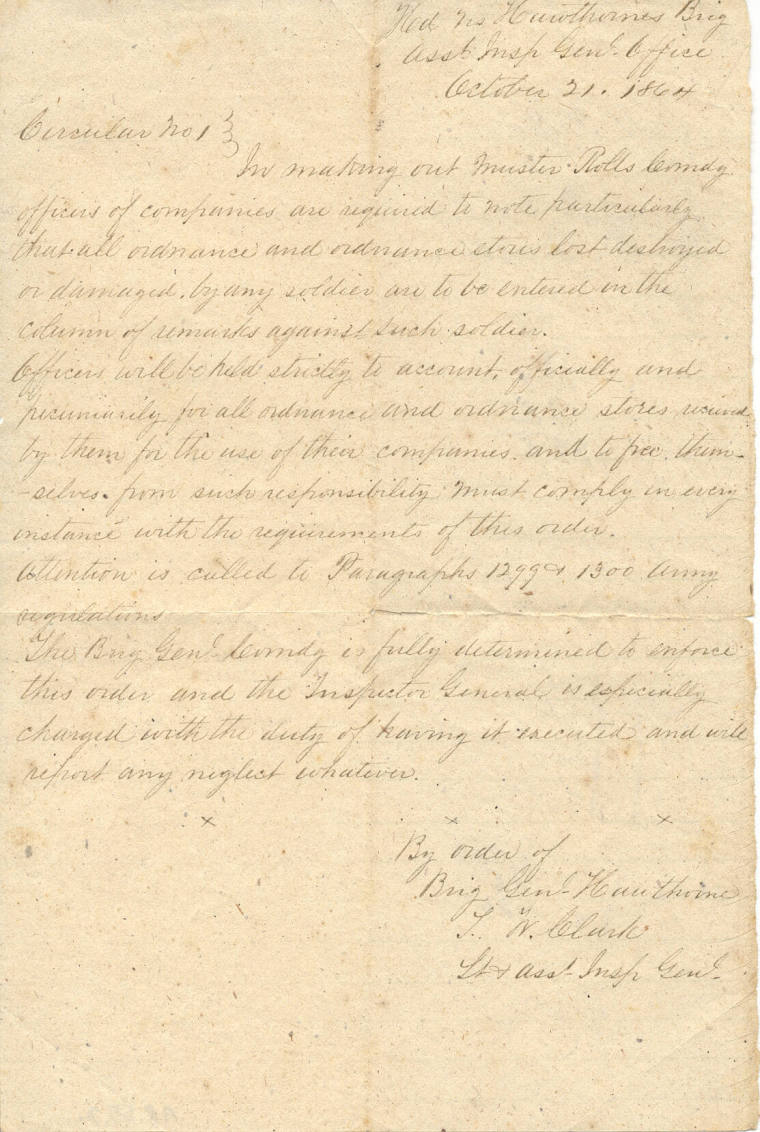 Hd Qrs Hawthornes Brig
Asst Insp Genl. Office
October 21. 1864
Circular No 1 }
In making out Muster Rolls Comdg
officers of companies are required to note particularly
that all ordnance and ordnance stores lost destroyed
or damaged. by any soldier are to be entered in the
column of remarks against such soldier.
Officers will be held strictly to account, officially and
pecuniarily for all ordnance and ordnance stores received
by them for the use of their companies. and to free them-
-selves. from such responsibility must comply in every
instance with the requirements of this order.
Attention is called to Paragraphs 1299 & 1300 Army
regulations
The Brig Genl. Comdg is fully determined to enforce
this order and the Inspector General is especially
charged with the duty of having it executed and will
report any neglect whatever.
x x x
By order of
Brig Genl Hawthorne
T. W. Clark
Lt & Asst Insp Genl.